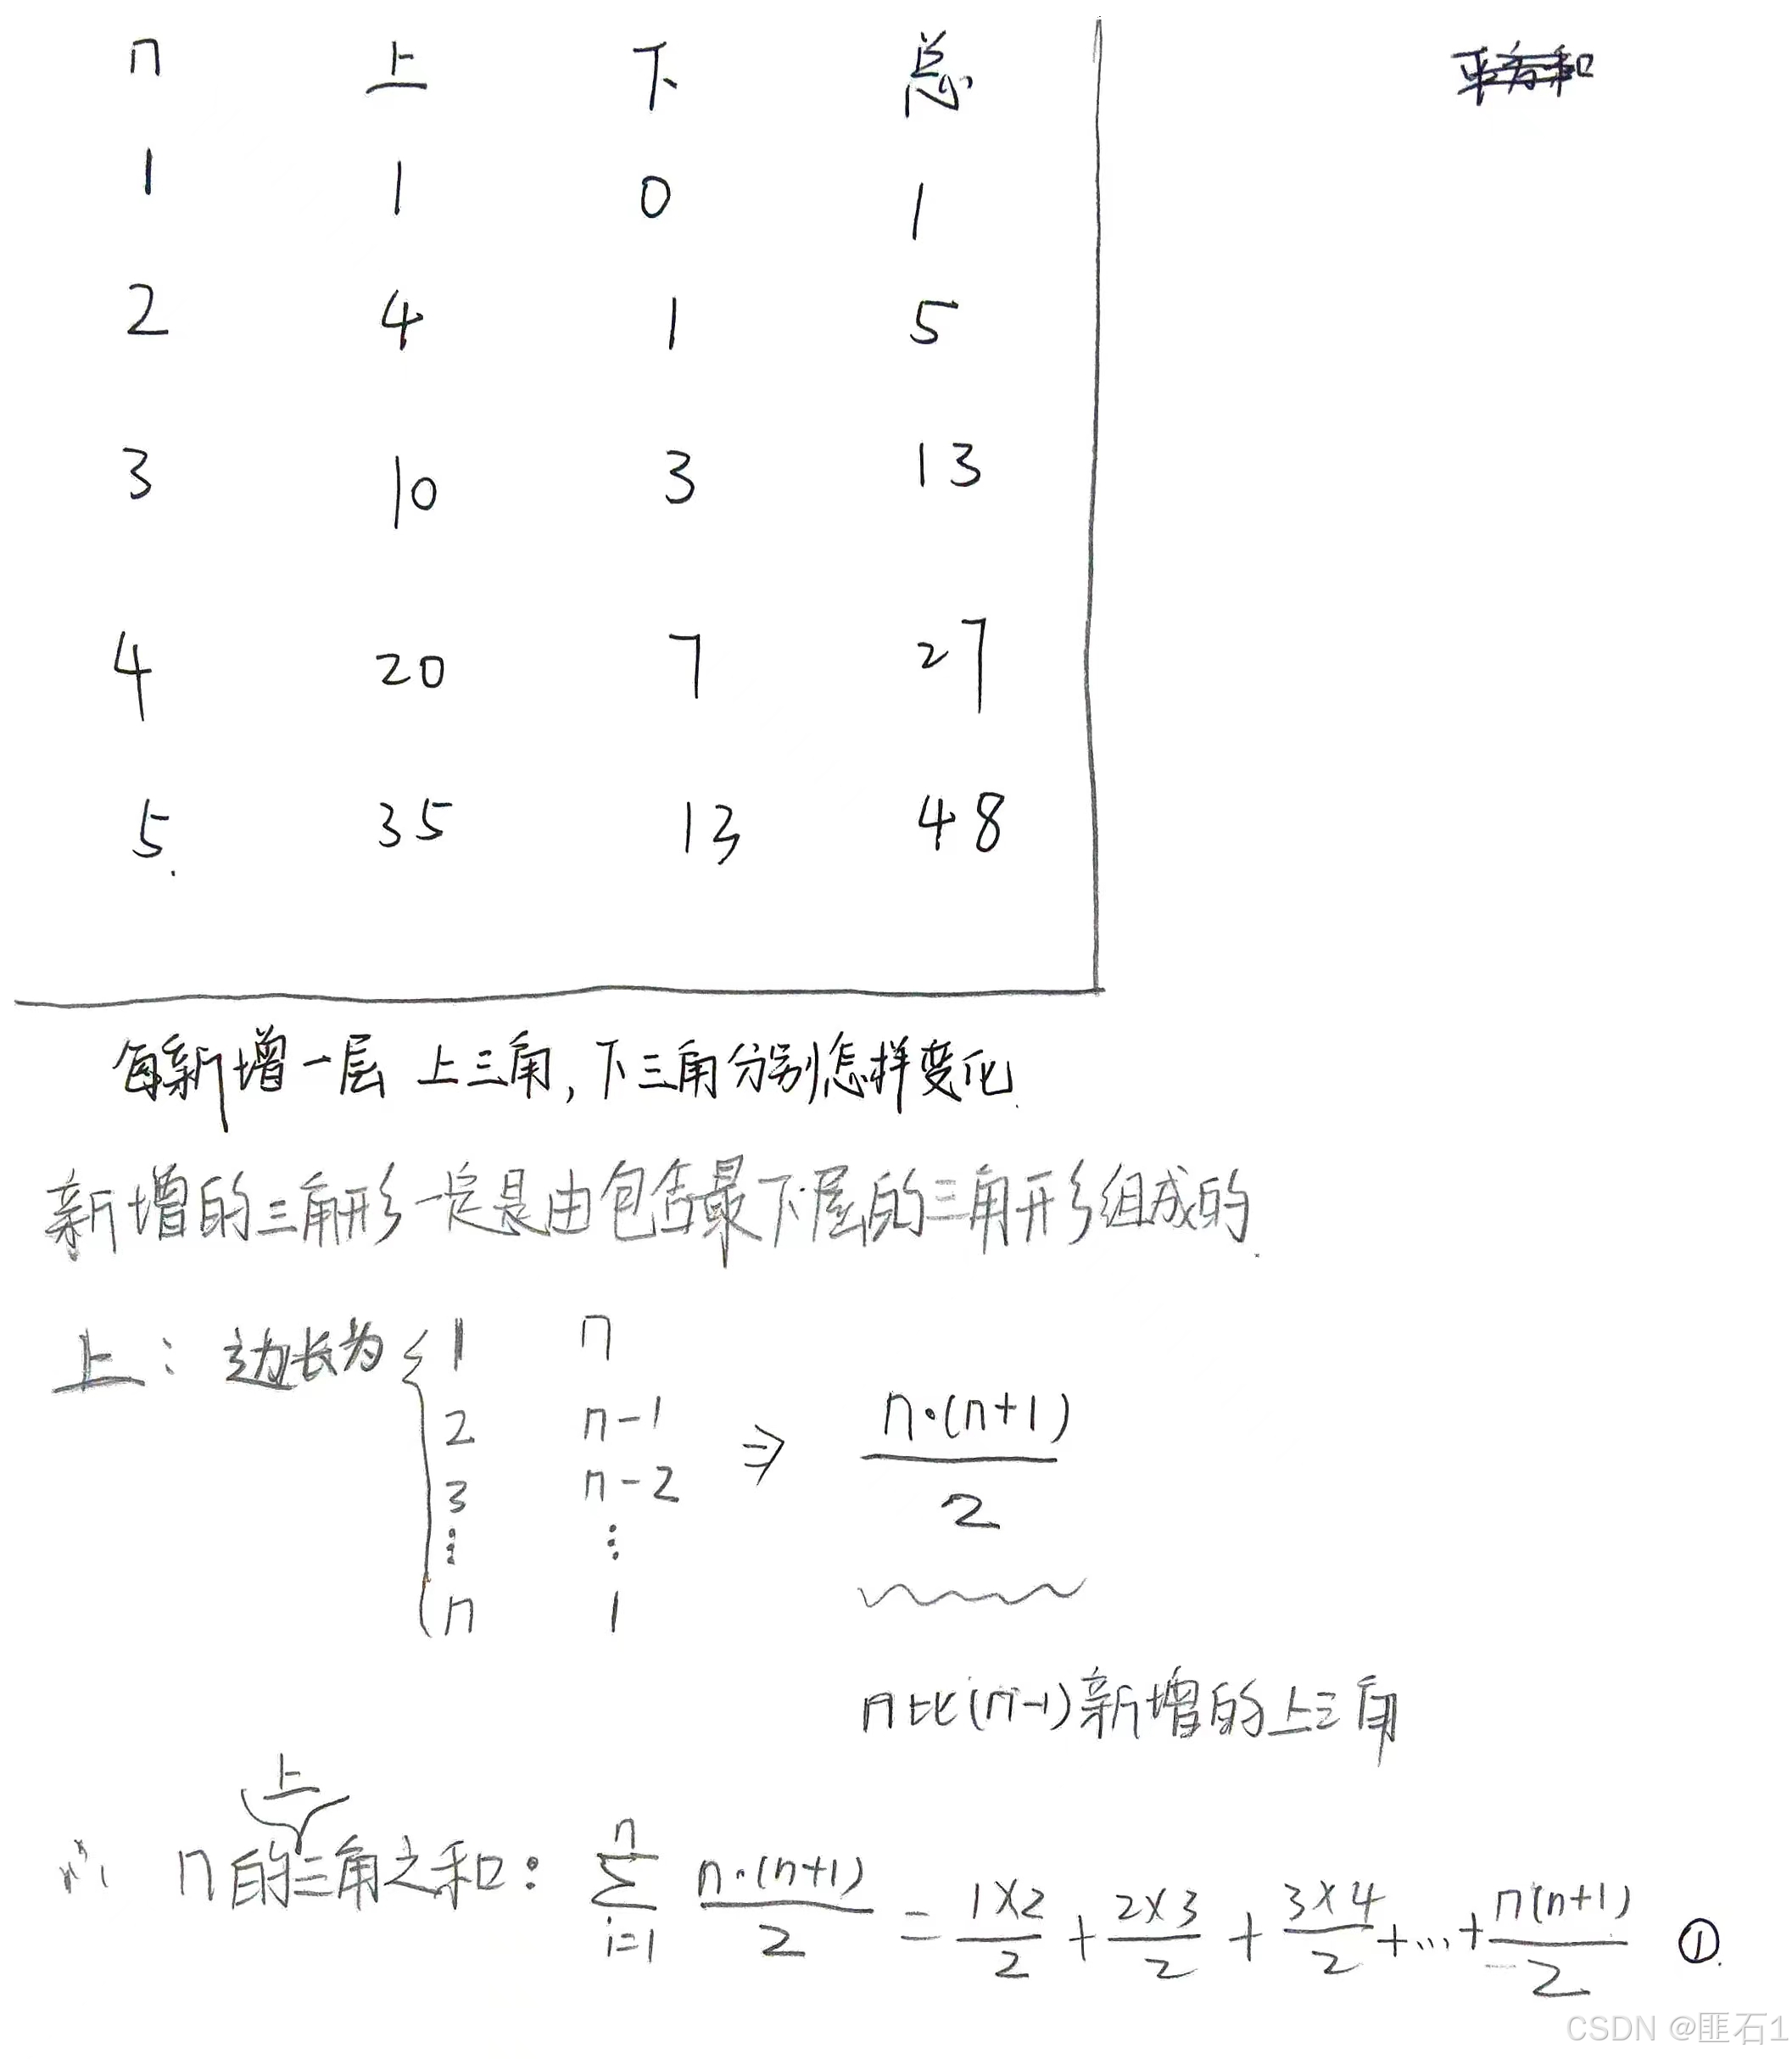 n 上 下 总 平方和
1 1 0 1
2 4 1 5
3 10 3 13
4 20 7 27
5. 35 13 48
每新增一层 上三角,下三角分别怎样变化.
新增的三角形一定是由包含最下层的三角形组成的.
上: 边长为 { 1 n
2 n-1
3 n-2 ⇒ n·(n+1)/2
⋮ ⋮
n 1
n比(n-1)新增的上三角
上
∴ n的三角之和: ∑_{i=1}^{n} n·(n+1)/2 = 1×2/2 + 2×3/2 + 3×4/2 +...+ n(n+1)/2 ①.
CSDN @匪石1